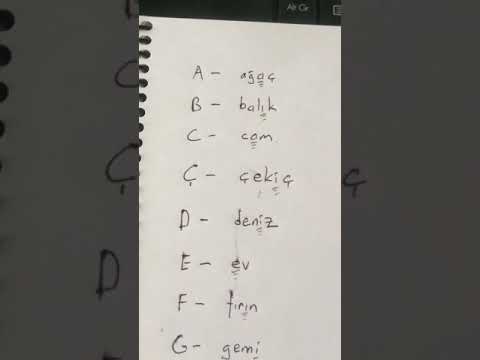 Alt Gr
A - ağaç
B - balık
C - cam
Ç - çekiç
D - deniz
E - ev
F - fırın
G - gemi